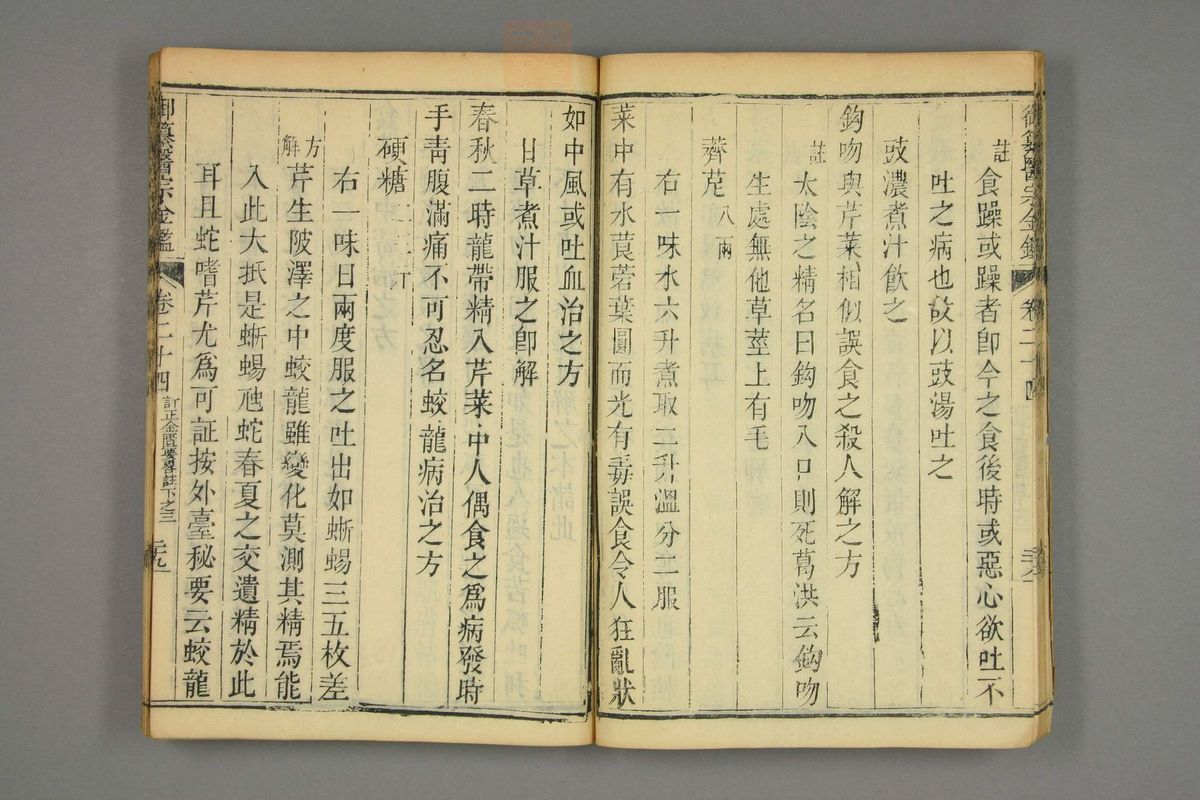 御纂醫宗金鑑 卷二十四
註 食躁或躁者卽今之食後時或惡心欲吐不
吐之病也故以豉湯吐之
豉濃煮汁飲之
鈎吻與芹菜相似誤食之殺人解之方
註 太陰之精名曰鈎吻入口則死葛洪云鈎吻
生處無他草莖上有毛
薺苨八兩
右一味水六升煮取二升溫分二服
菜中有水莨菪葉圓而光有毒誤食令人狂亂狀
如中風或吐血治之方
甘草煮汁服之卽解
春秋二時龍帶精入芹菜中人偶食之爲病發時
手靑腹滿痛不可忍名蛟龍病治之方
硬糖二三升
右一味日兩度服之吐出如蜥蜴三五枚差
方解 芹生陂澤之中蛟龍雖變化莫測其精焉能
入此大抵是蜥蜴虺蛇春夏之交遺精於此
耳且蛇嗜芹尤爲可証按外臺秘要云蛟龍
御纂醫宗金鑑 卷二十四 訂正金匱要畧註下之三